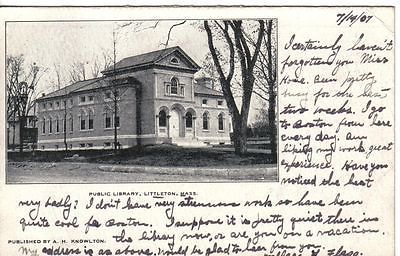 7/19/07
I certainly haven't
forgotten you Miss
Hose. Am pretty
busy for the last
two weeks. I go
to Boston from here
every day. Am
liking my work great
experience. Have you
noticed the best
PUBLIC LIBRARY, LITTLETON, MASS.
very badly? I don't have very strenuous work so have been
quite cool for Boston. I suppose it is pretty quiet there in
the library now, or are you on a vacation.
PUBLISHED BY A. H. KNOWLTON.
My address is as above. Would be glad to hear from you.